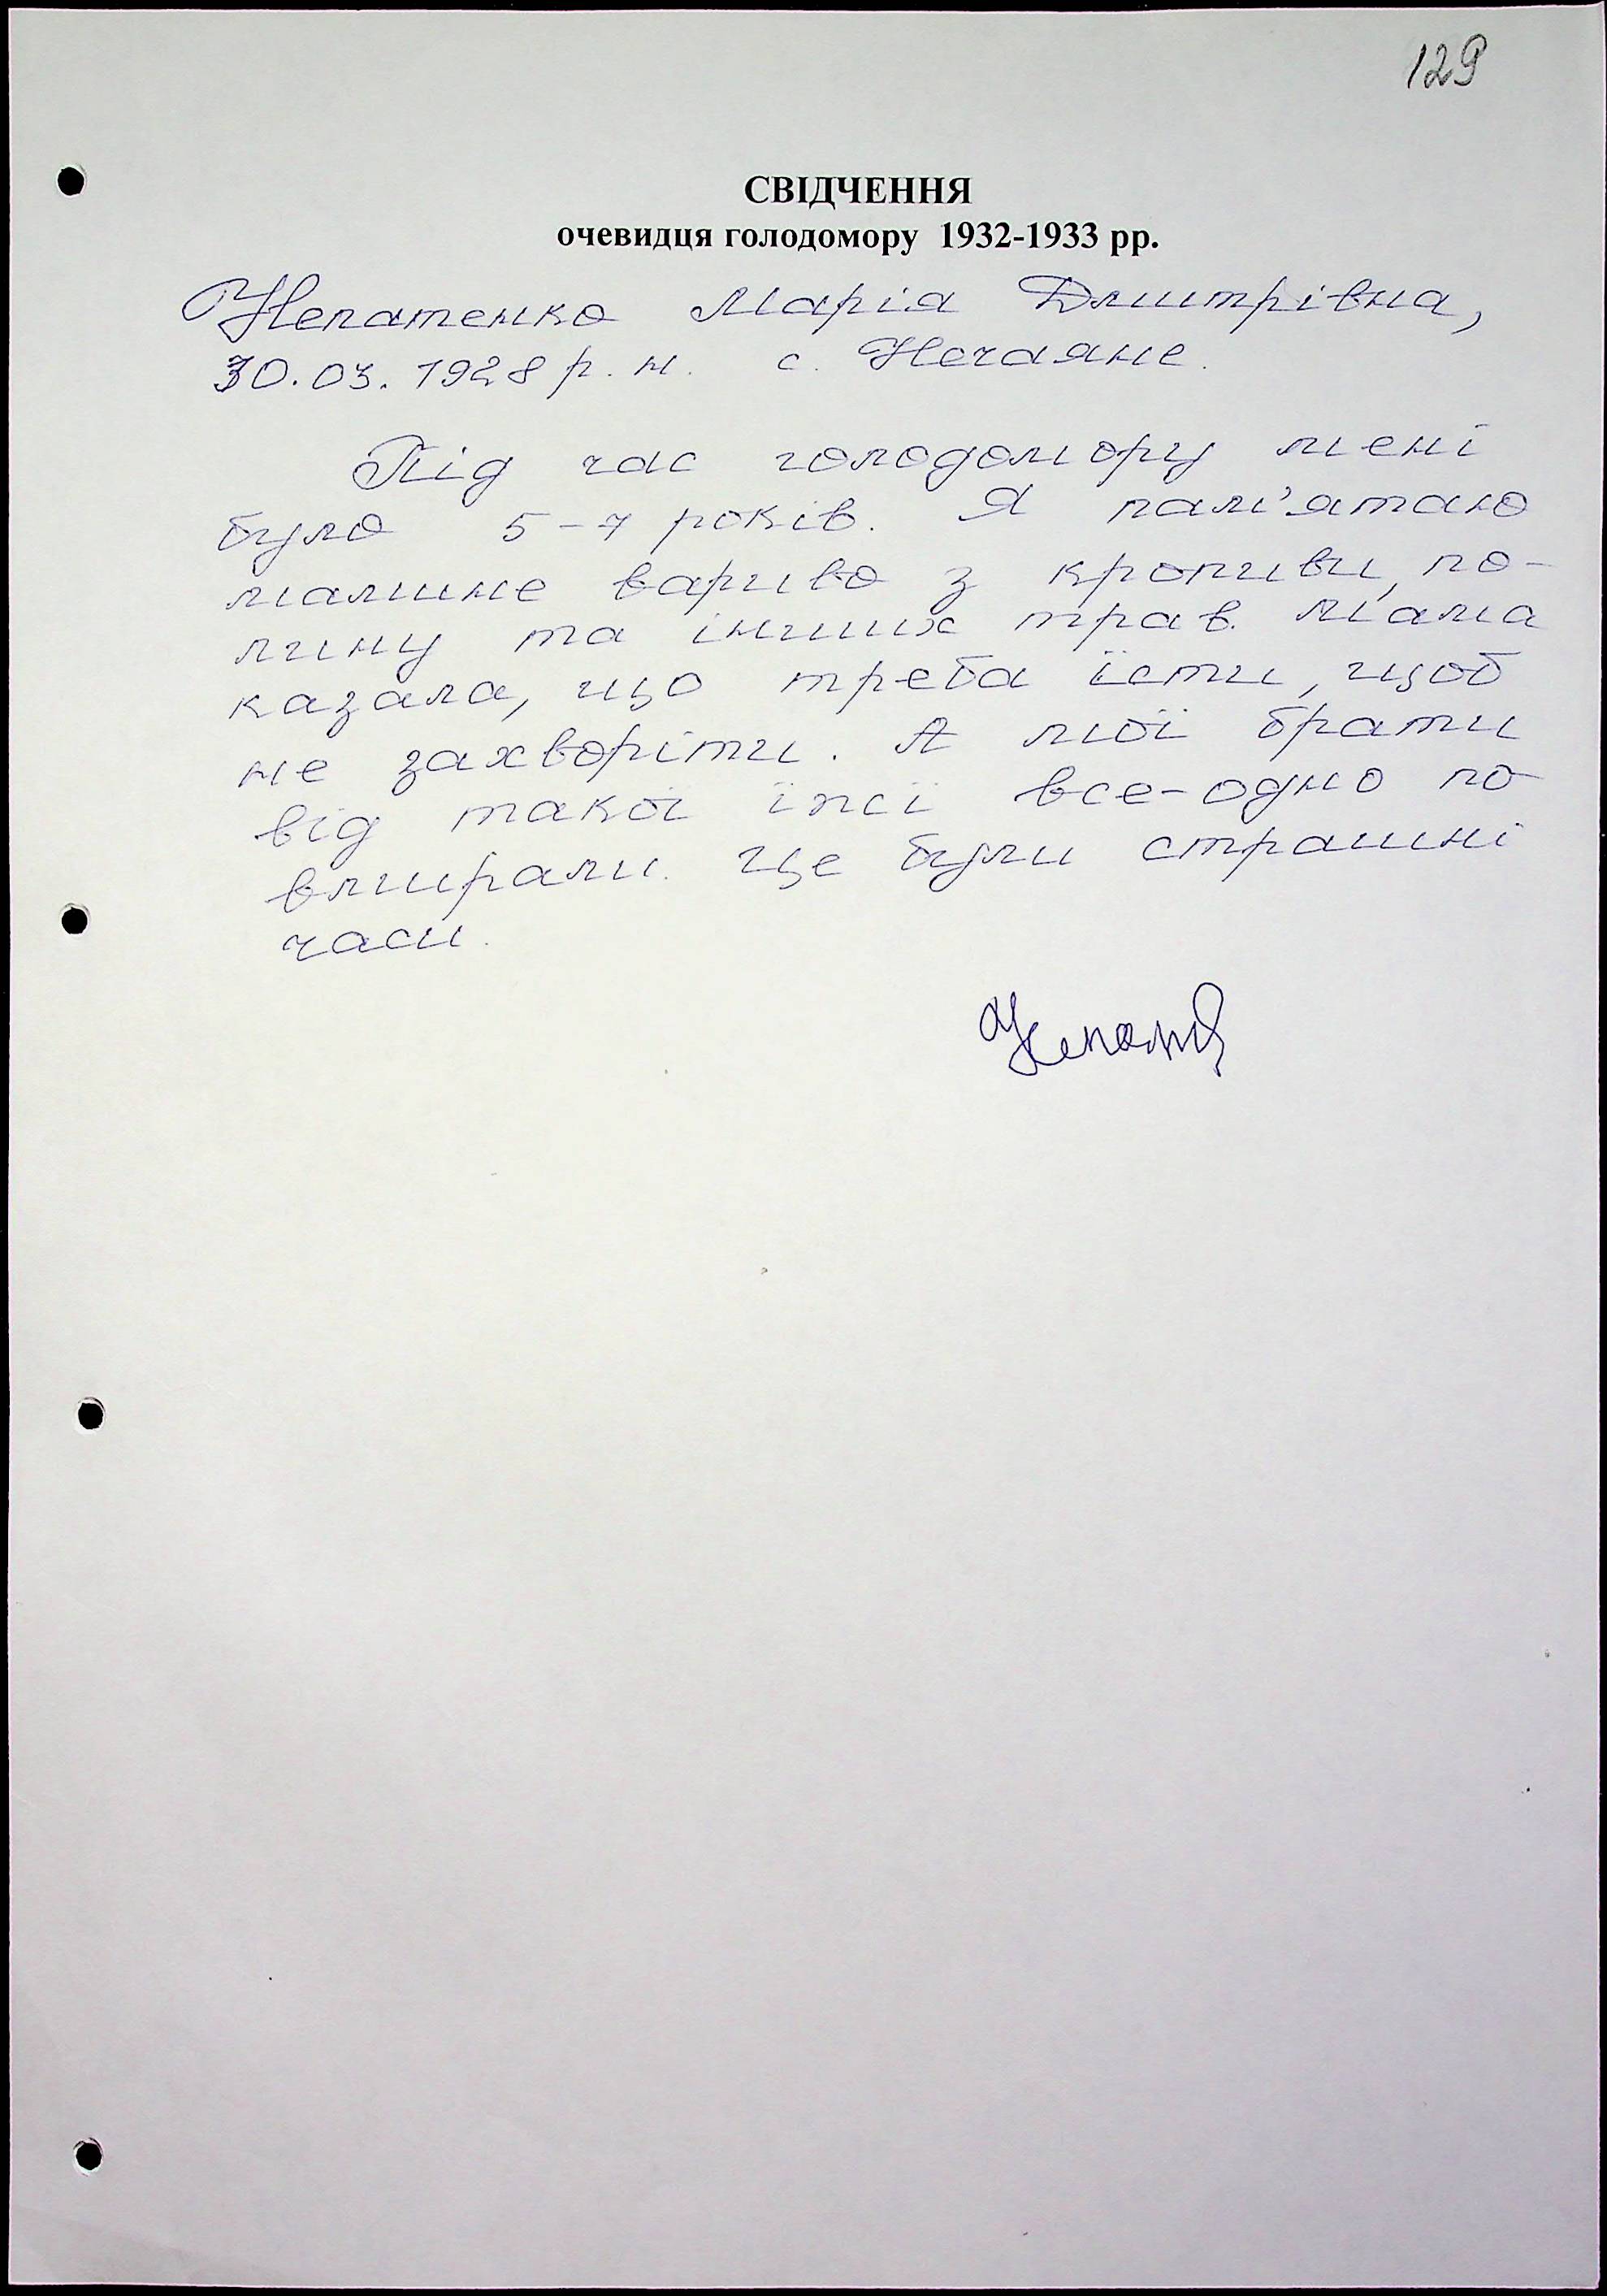 129
СВІДЧЕННЯ
очевидця голодомору 1932-1933 рр.
Непатенко Марія Дмитрівна,
30.03.1928 р.н. с. Нечаяне.
Під час голодомору мені
було 5-7 років. Я пам'ятаю
мамине вариво з кропиви, по-
лину та інших трав. Мама
казала, що треба їсти, щоб
не захворіти. А мої брати
від такої їжі все-одно по
вмирали. Це були страшні
часи.